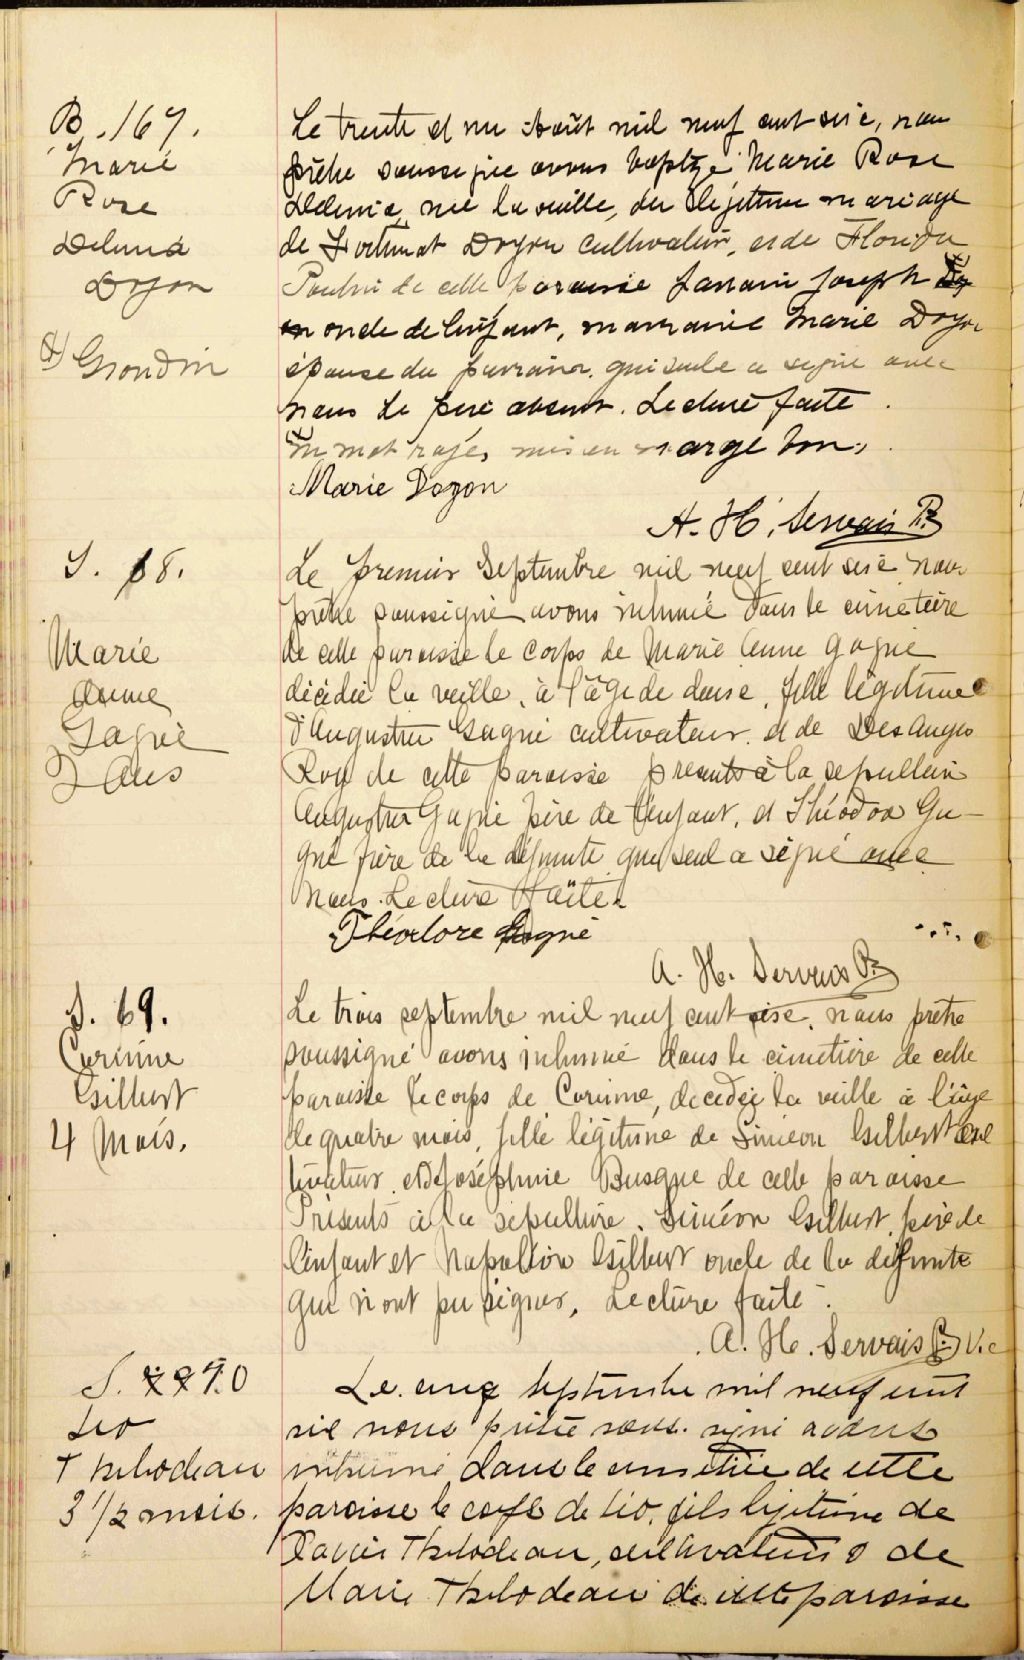 B. 167.
Marie
Rose
Delima
Doyon
(x) Grondin
Le trente et un Août mil neuf cent seize, nous
prêtre soussigné avons baptizé Marie Rose
Delima, née la veille, du légitime mariage
de Fortunat Doyon cultivateur, et de Florida
Poulin de cette paroisse Parrain Joseph (x)
oncle de l'enfant, marraine Marie Doyon
épouse du parrain qui seule a signé avec
nous Le père absent. Lecture faite.
(x) Un mot rayé, mis en marge bon.
Marie Doyon
A. H. Servais Ptr
S. 68.
Marie
Anne
Gagné
2 Ans
Le premier Septembre mil neuf cent seize nous
prêtre soussigné avons inhumé dans le cimetière
de cette paroisse le corps de Marie Anne Gagné
décédée la veille, à l'âge de , fille légitime
d'Augustin Gagné cultivateur et de Desanges
Roy de cette paroisse présents à la sépulture
Augustin Gagné père de l'enfant, et Théodore Ga-
gné frère de la défunte qui seul a signé avec
nous. Lecture faite.
Théodore Gagné
A. H. Servais Ptr
S. 69.
Corinne
Gilbert
4 Mois.
Le trois septembre mil neuf cent seize, nous prêtre
soussigné avons inhumé dans le cimetière de cette
paroisse le corps de Corinne, décédée la veille à l'âge
de quatre mois, fille légitime de Siméon Gilbert cul
tivateur et de Joséphine Busque de cette paroisse
Présents à la sépulture, Siméon Gilbert, père de
l'enfant et Napoléon Gilbert oncle de la défunte
qui n'ont pu signer, Lecture faite.
A. H. Servais Ptr Vic
S. 70
Léo
Thibodeau
3 1/2 mois.
Le cinq septembre mil neuf cent
seize nous prêtre sous. signé avons
inhumé dans le cimetière de cette
paroisse le corps de Léo, fils légitime de
Xavier Thibodeau, cultivateur & de
Marie Thibodeau de cette paroisse